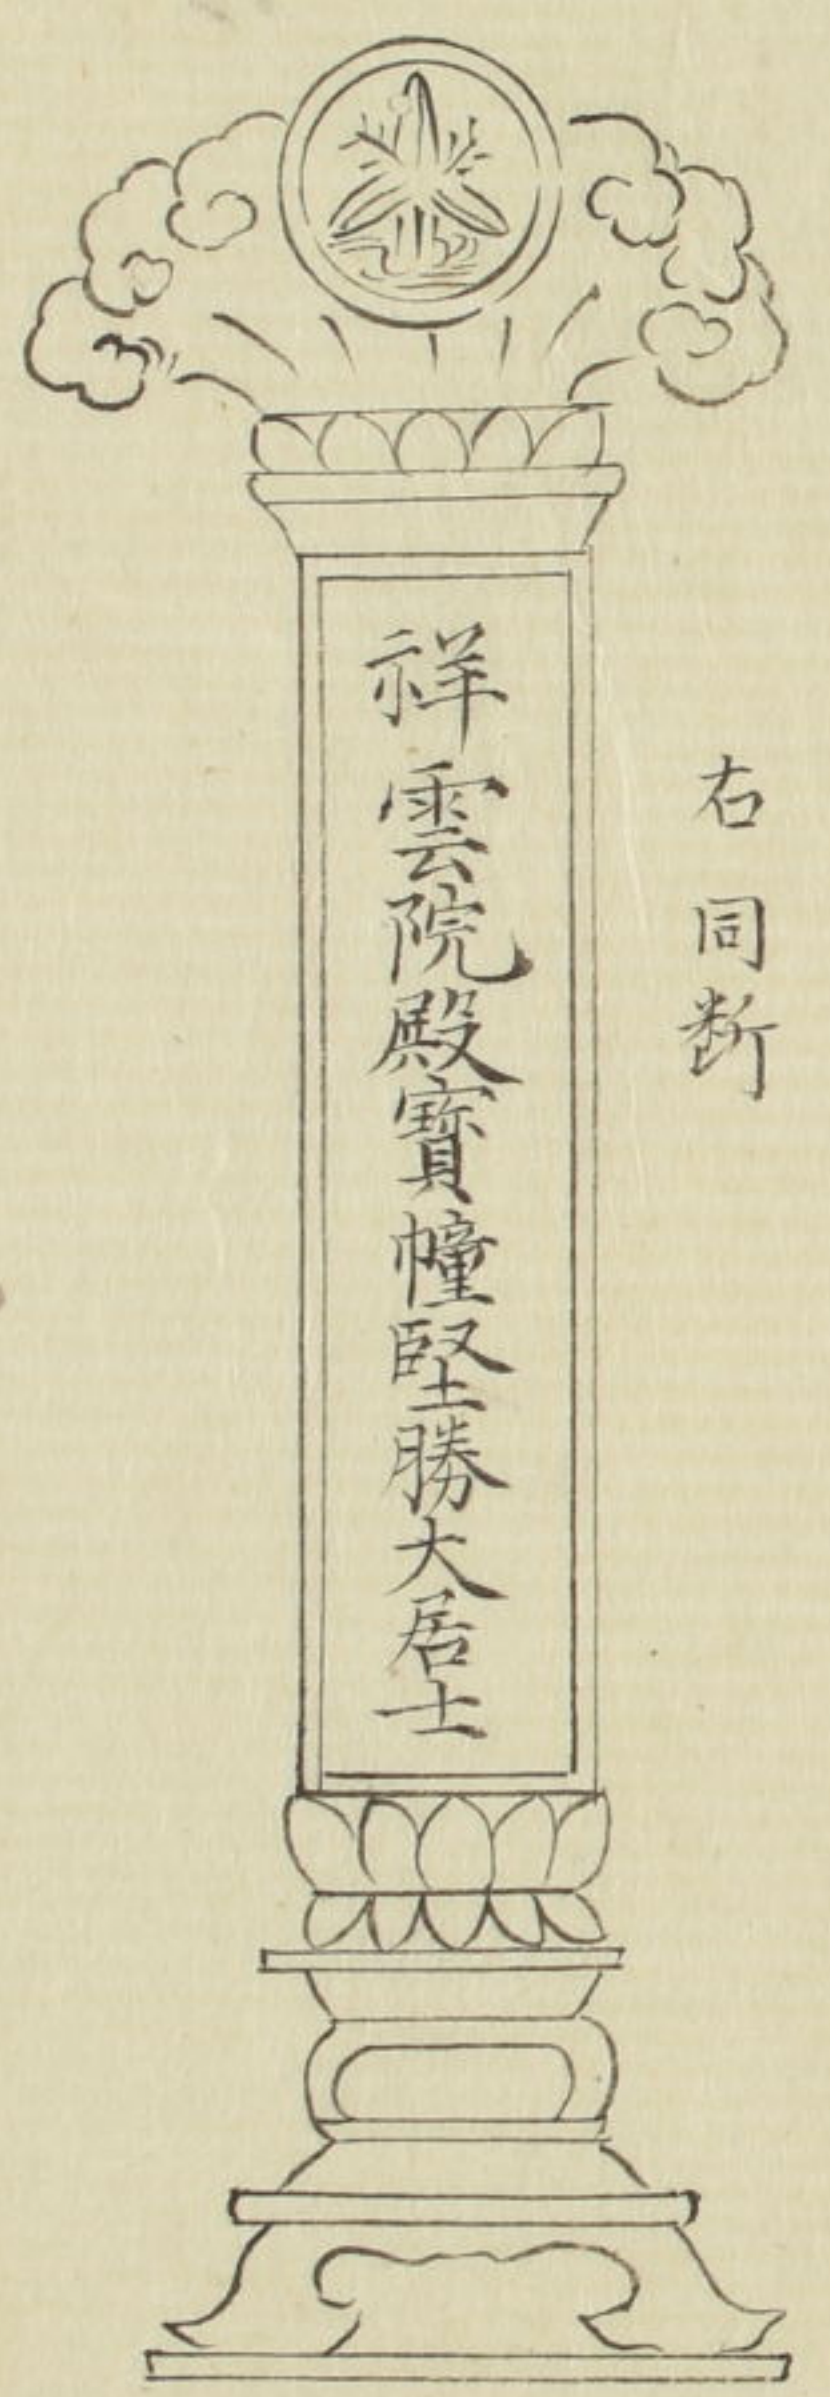 右同断
祥雲院殿寶幢堅勝大居士